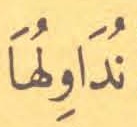 نُدَاوِلُهَا